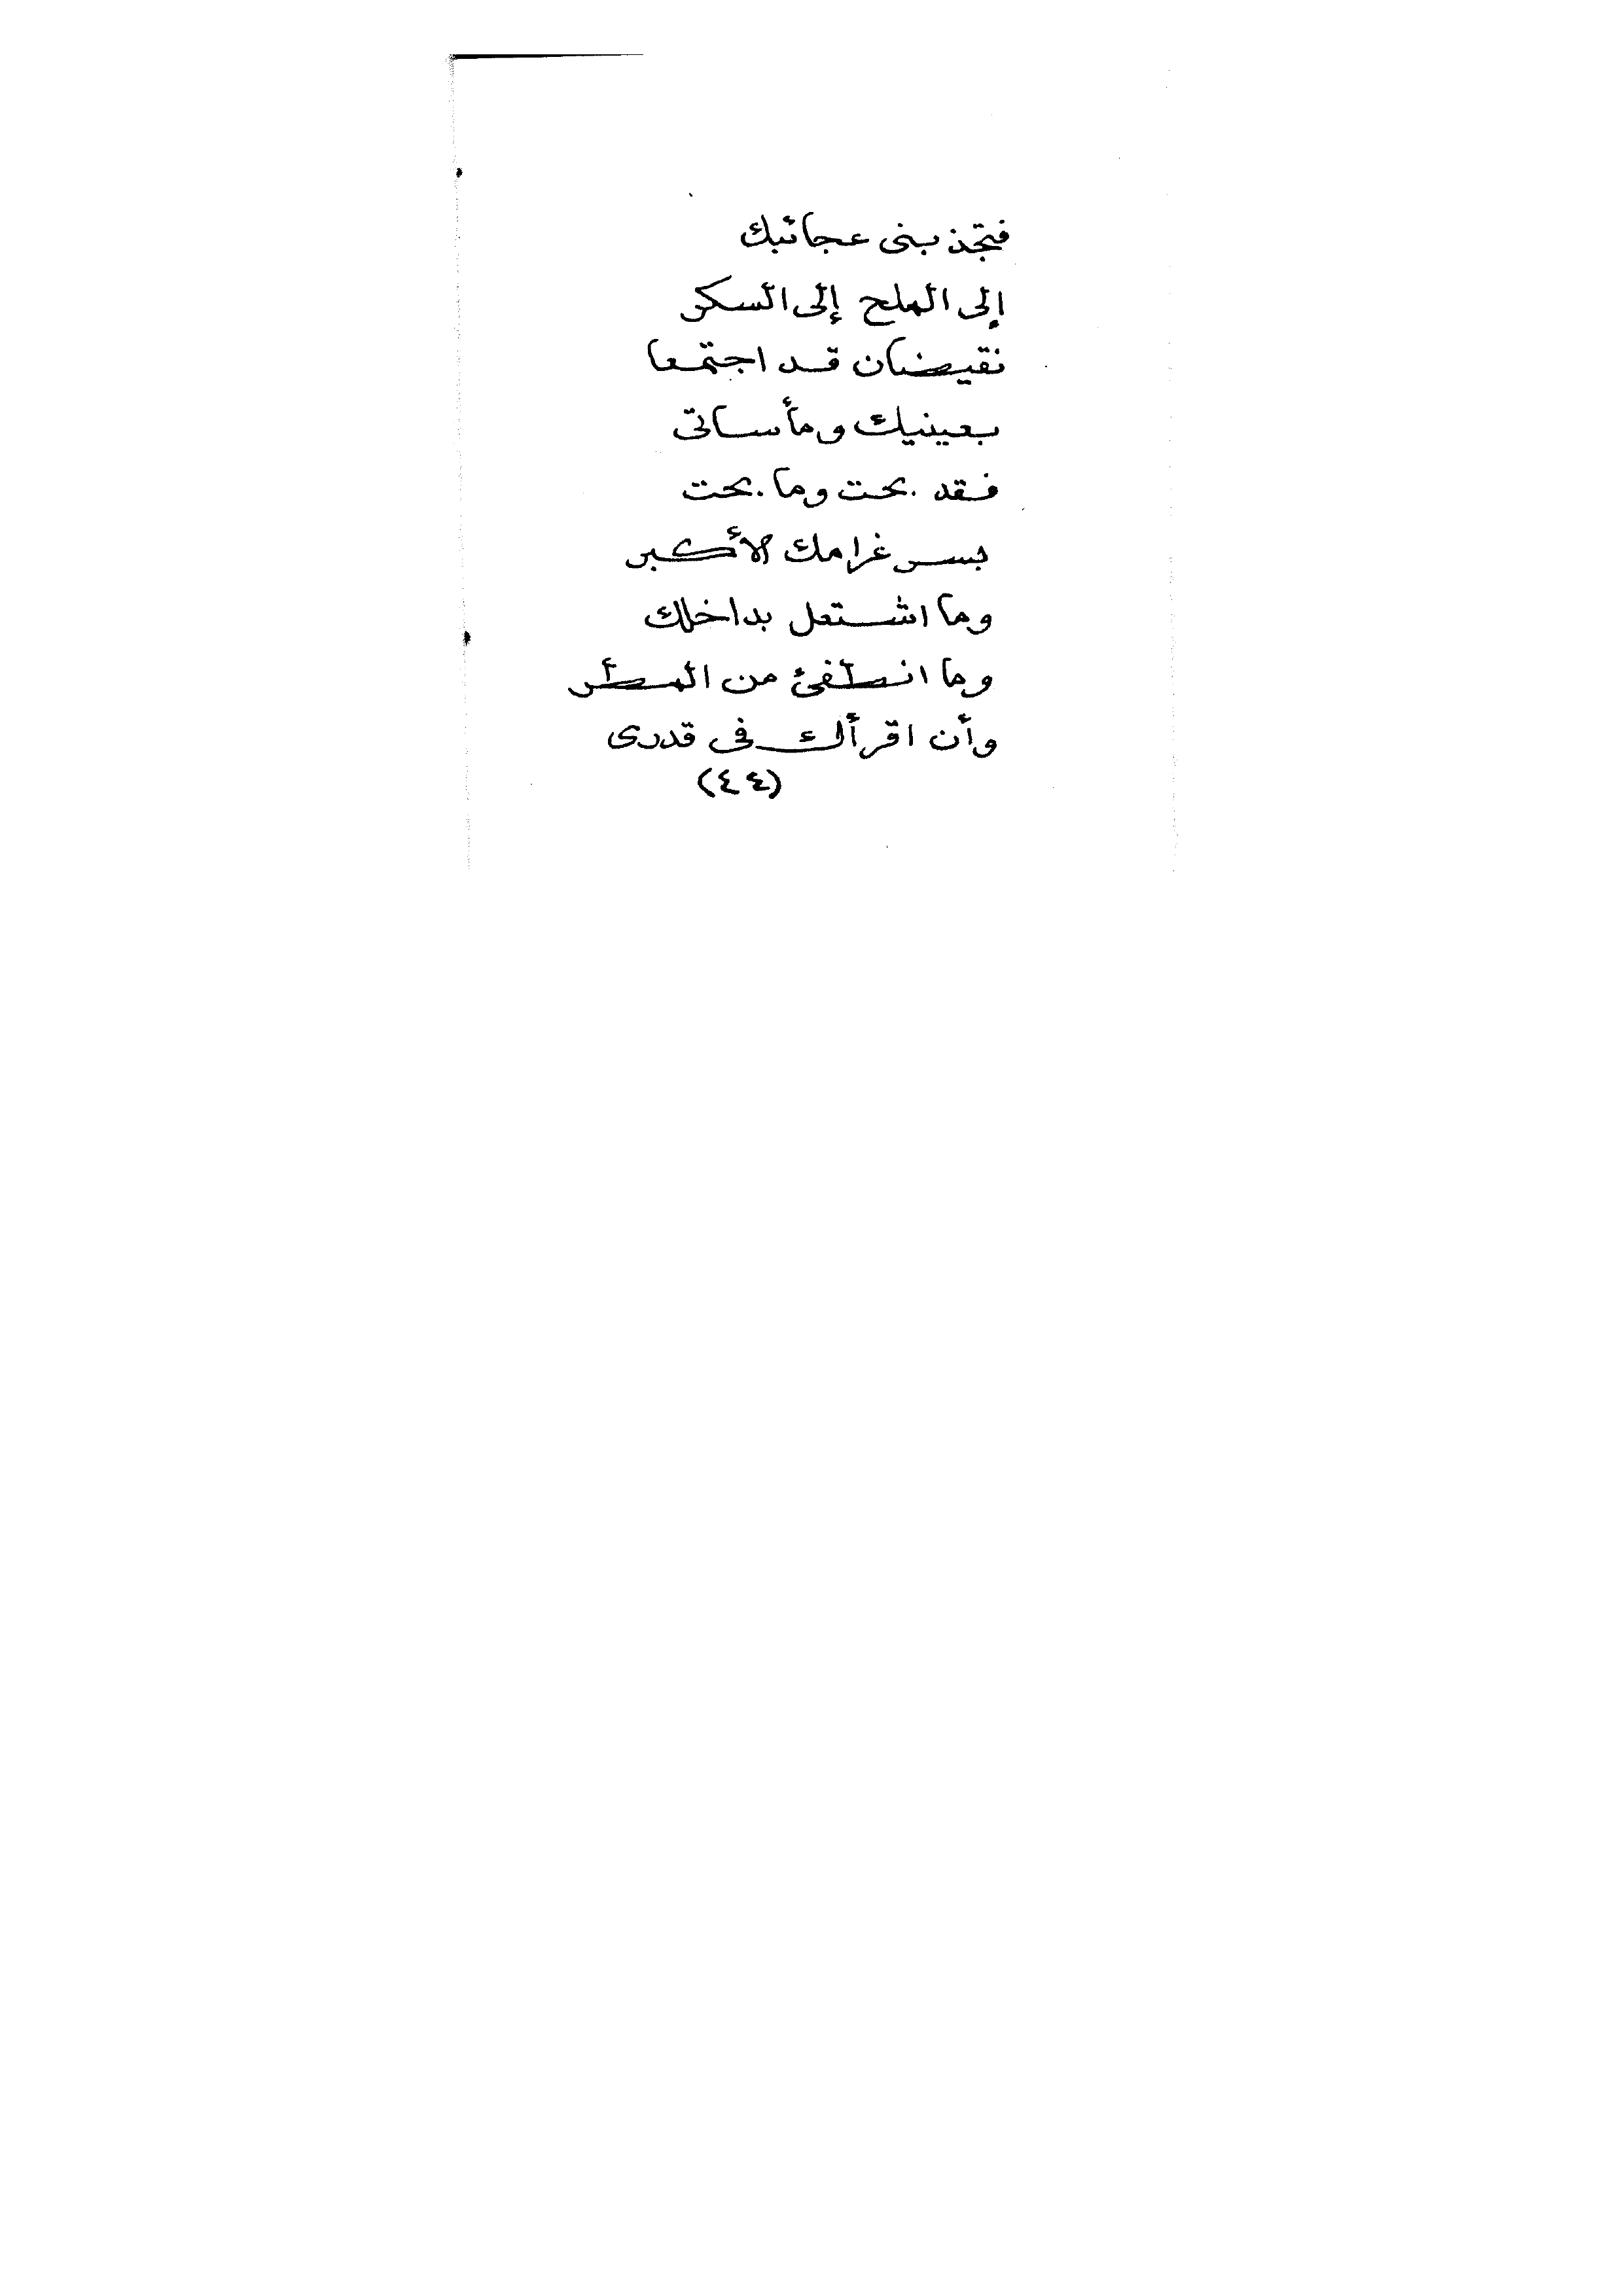 فتجذبنى عجائبك
إلى الملح إلى السكر
نقيضان قد اجتمعا
بعينيك ومأساتى
فقد بحت وما بحت
بسر غرامك الأكبر
وما اشتعل بداخلك
وما انطفئ من المطر
وأن اقرأك فى قدرى
(٤٤)